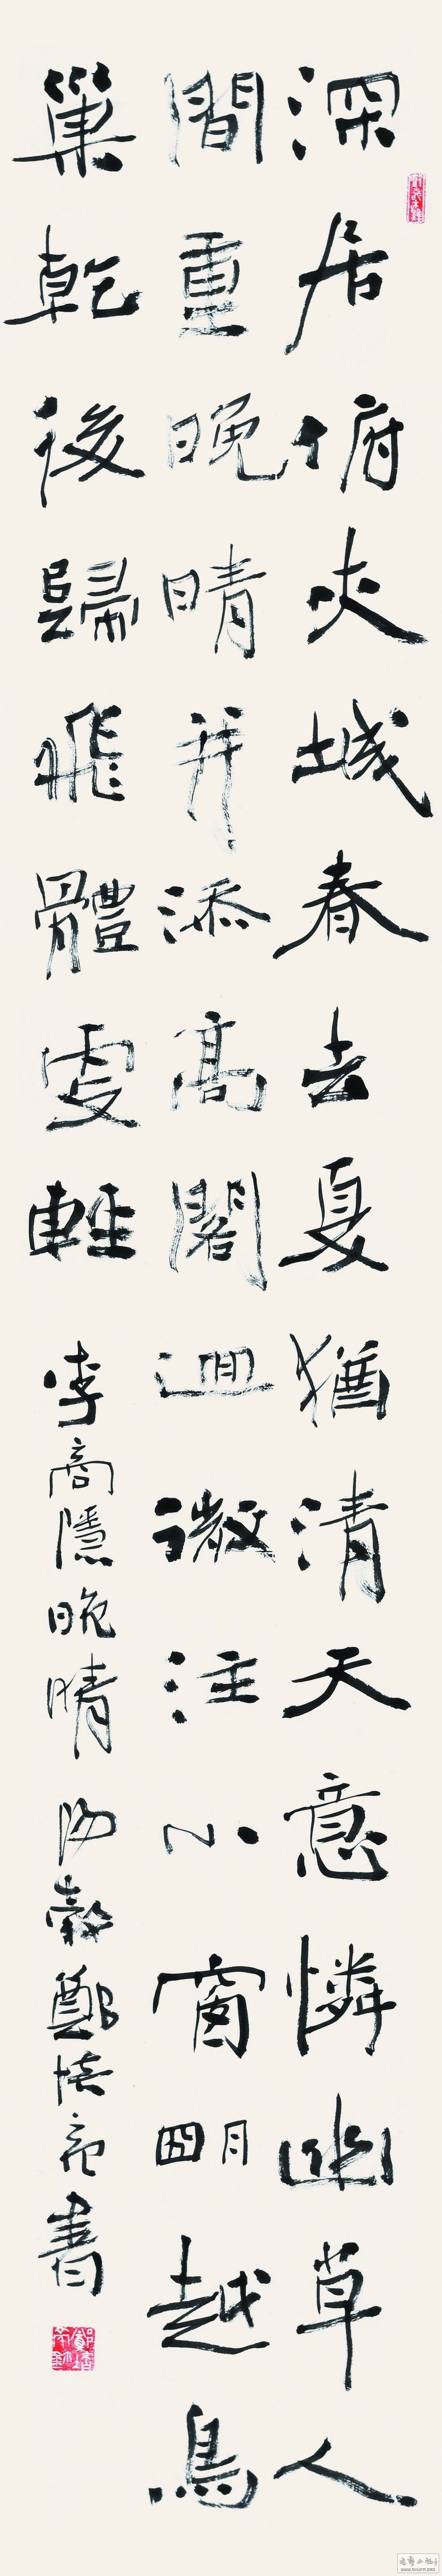 深居俯夾城春去夏猶清天意憐幽草人
間重晚晴并添高閣迴微注小窗朙越鳥
巢乾後歸飛體更輕 李商隱晚晴 陽穀鄭培亮書